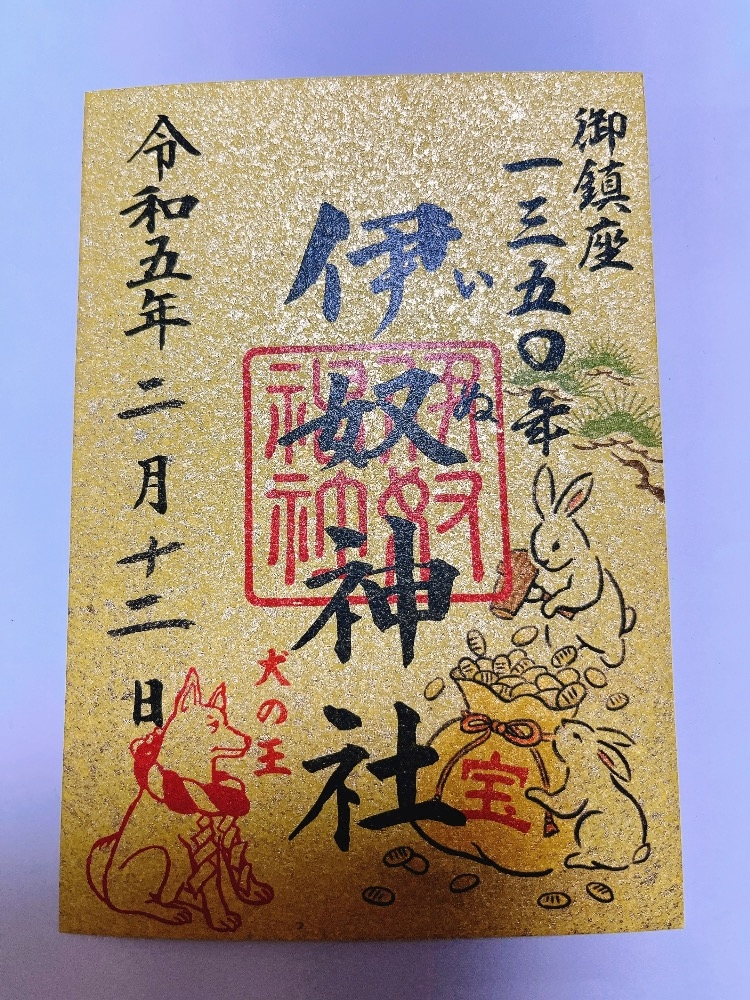 御鎮座
一三五〇年
伊奴神社
いぬ
伊奴神社
犬の王
宝
令和五年二月十二日